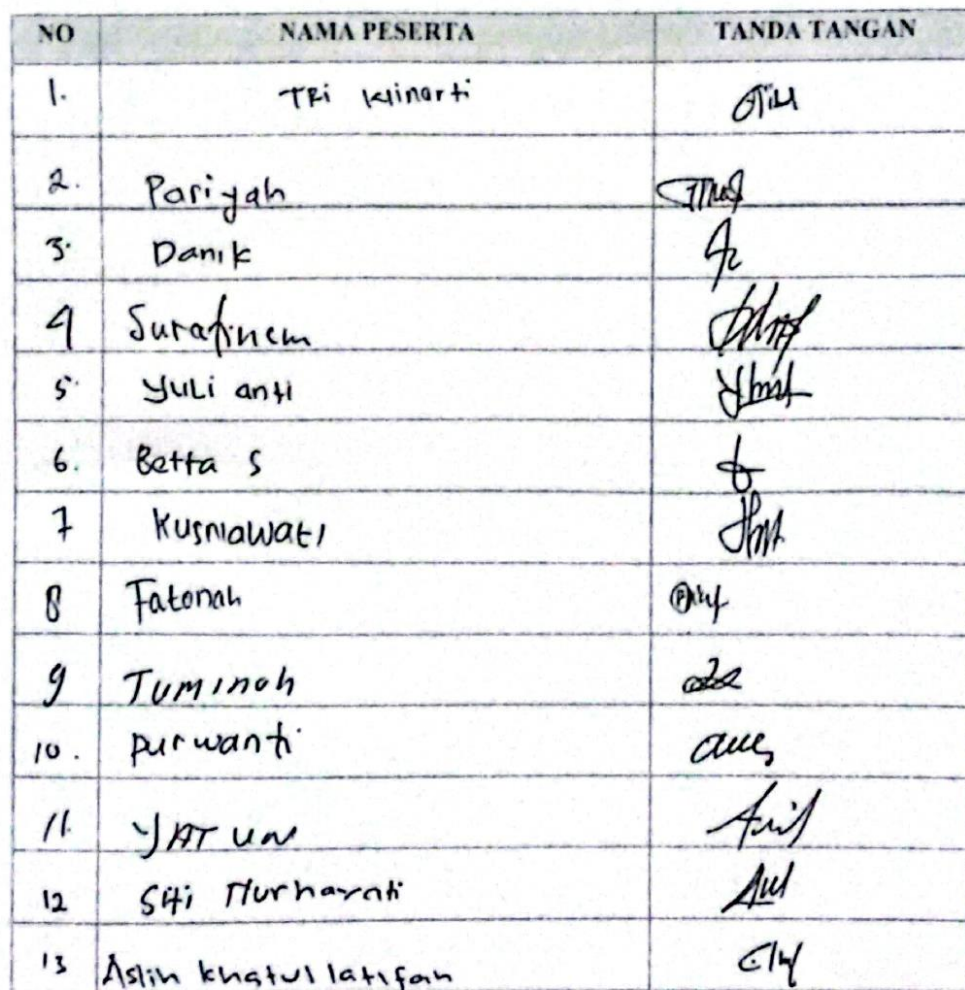 NO NAMA PESERTA TANDA TANGAN
1. TRi Winarti
2. Pariyah
3. Danik
4 Suratinem
5. Yuli anti
6. Betta S
7 Kusniawati
8 Fatonah
9 Tuminah
10. purwanti
11. YATUN
12 Siti Nurhayati
13 Aslih khatul latifah